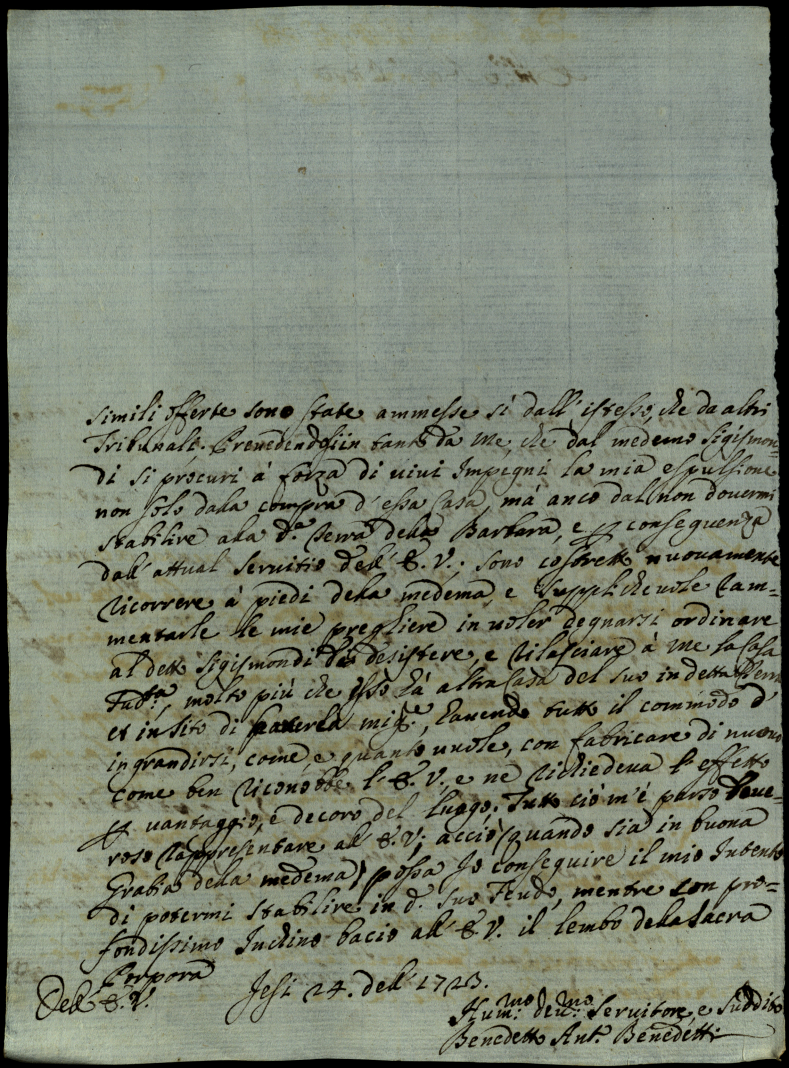 simili offerte sono state ammesse sì dall'istesso, che da altri
Tribunali. Prevedendosi in tanto da me, che dal medemo Sigismon=
di si procuri à forza di vivi Impegni la mia espulsione
non solo dalla compra d'essa Casa, mà anco dal non dovermi
stabilire alla d.ª Terra della Barbara, e p conseguenza
dall'attual servitio dell'E.V.; sono costretto nuovamente
ricorrere à piedi della medema, e supplichevole ram=
mentarle le mie preghiere in voler degnarsi ordinare
al detto Sigismondi di desistere, e rilasciare à me la Casa
sud.ª, molto più che esso hà altra Casa del suo in detta Terra
et in sito di farla, havendo tutto il commodo d'
ingrandirsi, come, e quanto vuole, con fabricare di nuovo
come ben riconobbe l'E.V. e ne richiedeva l'effetto
p vantaggio, e decoro del luogo. Tutto ciò m'è parso dove=
roso rappresentare all'E.V., acciò (quando sia in buona
Gratia della medema) possa Io conseguire il mio Intento
di potermi stabilire in d.º suo Feudo, mentre con pro=
fondissimo Inchino bacio all'E.V. il lembo della Sacra
Porpora
Dell'E.V. Jesi 24. dell' 1723.
Hum.mo dev.mo Servitore, e Suddito
Benedetto Ant.º Benedetti